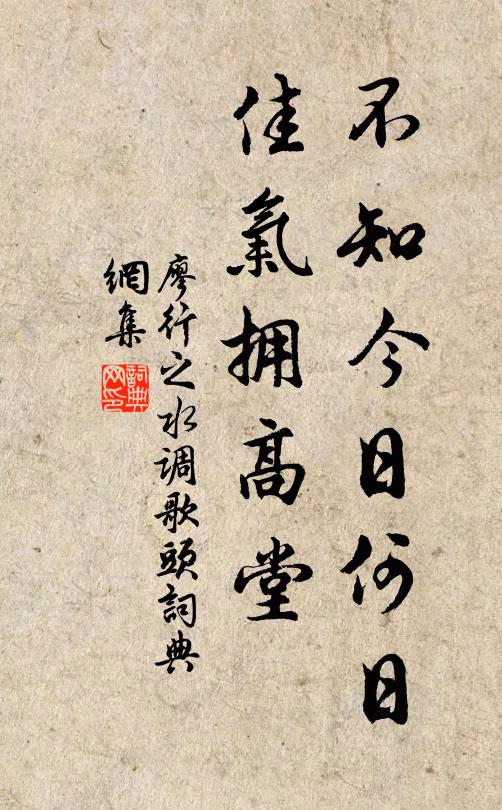 不知今日何日
佳氣拥高堂
廖行之水调歌頭詞典
網集
詞典
网印